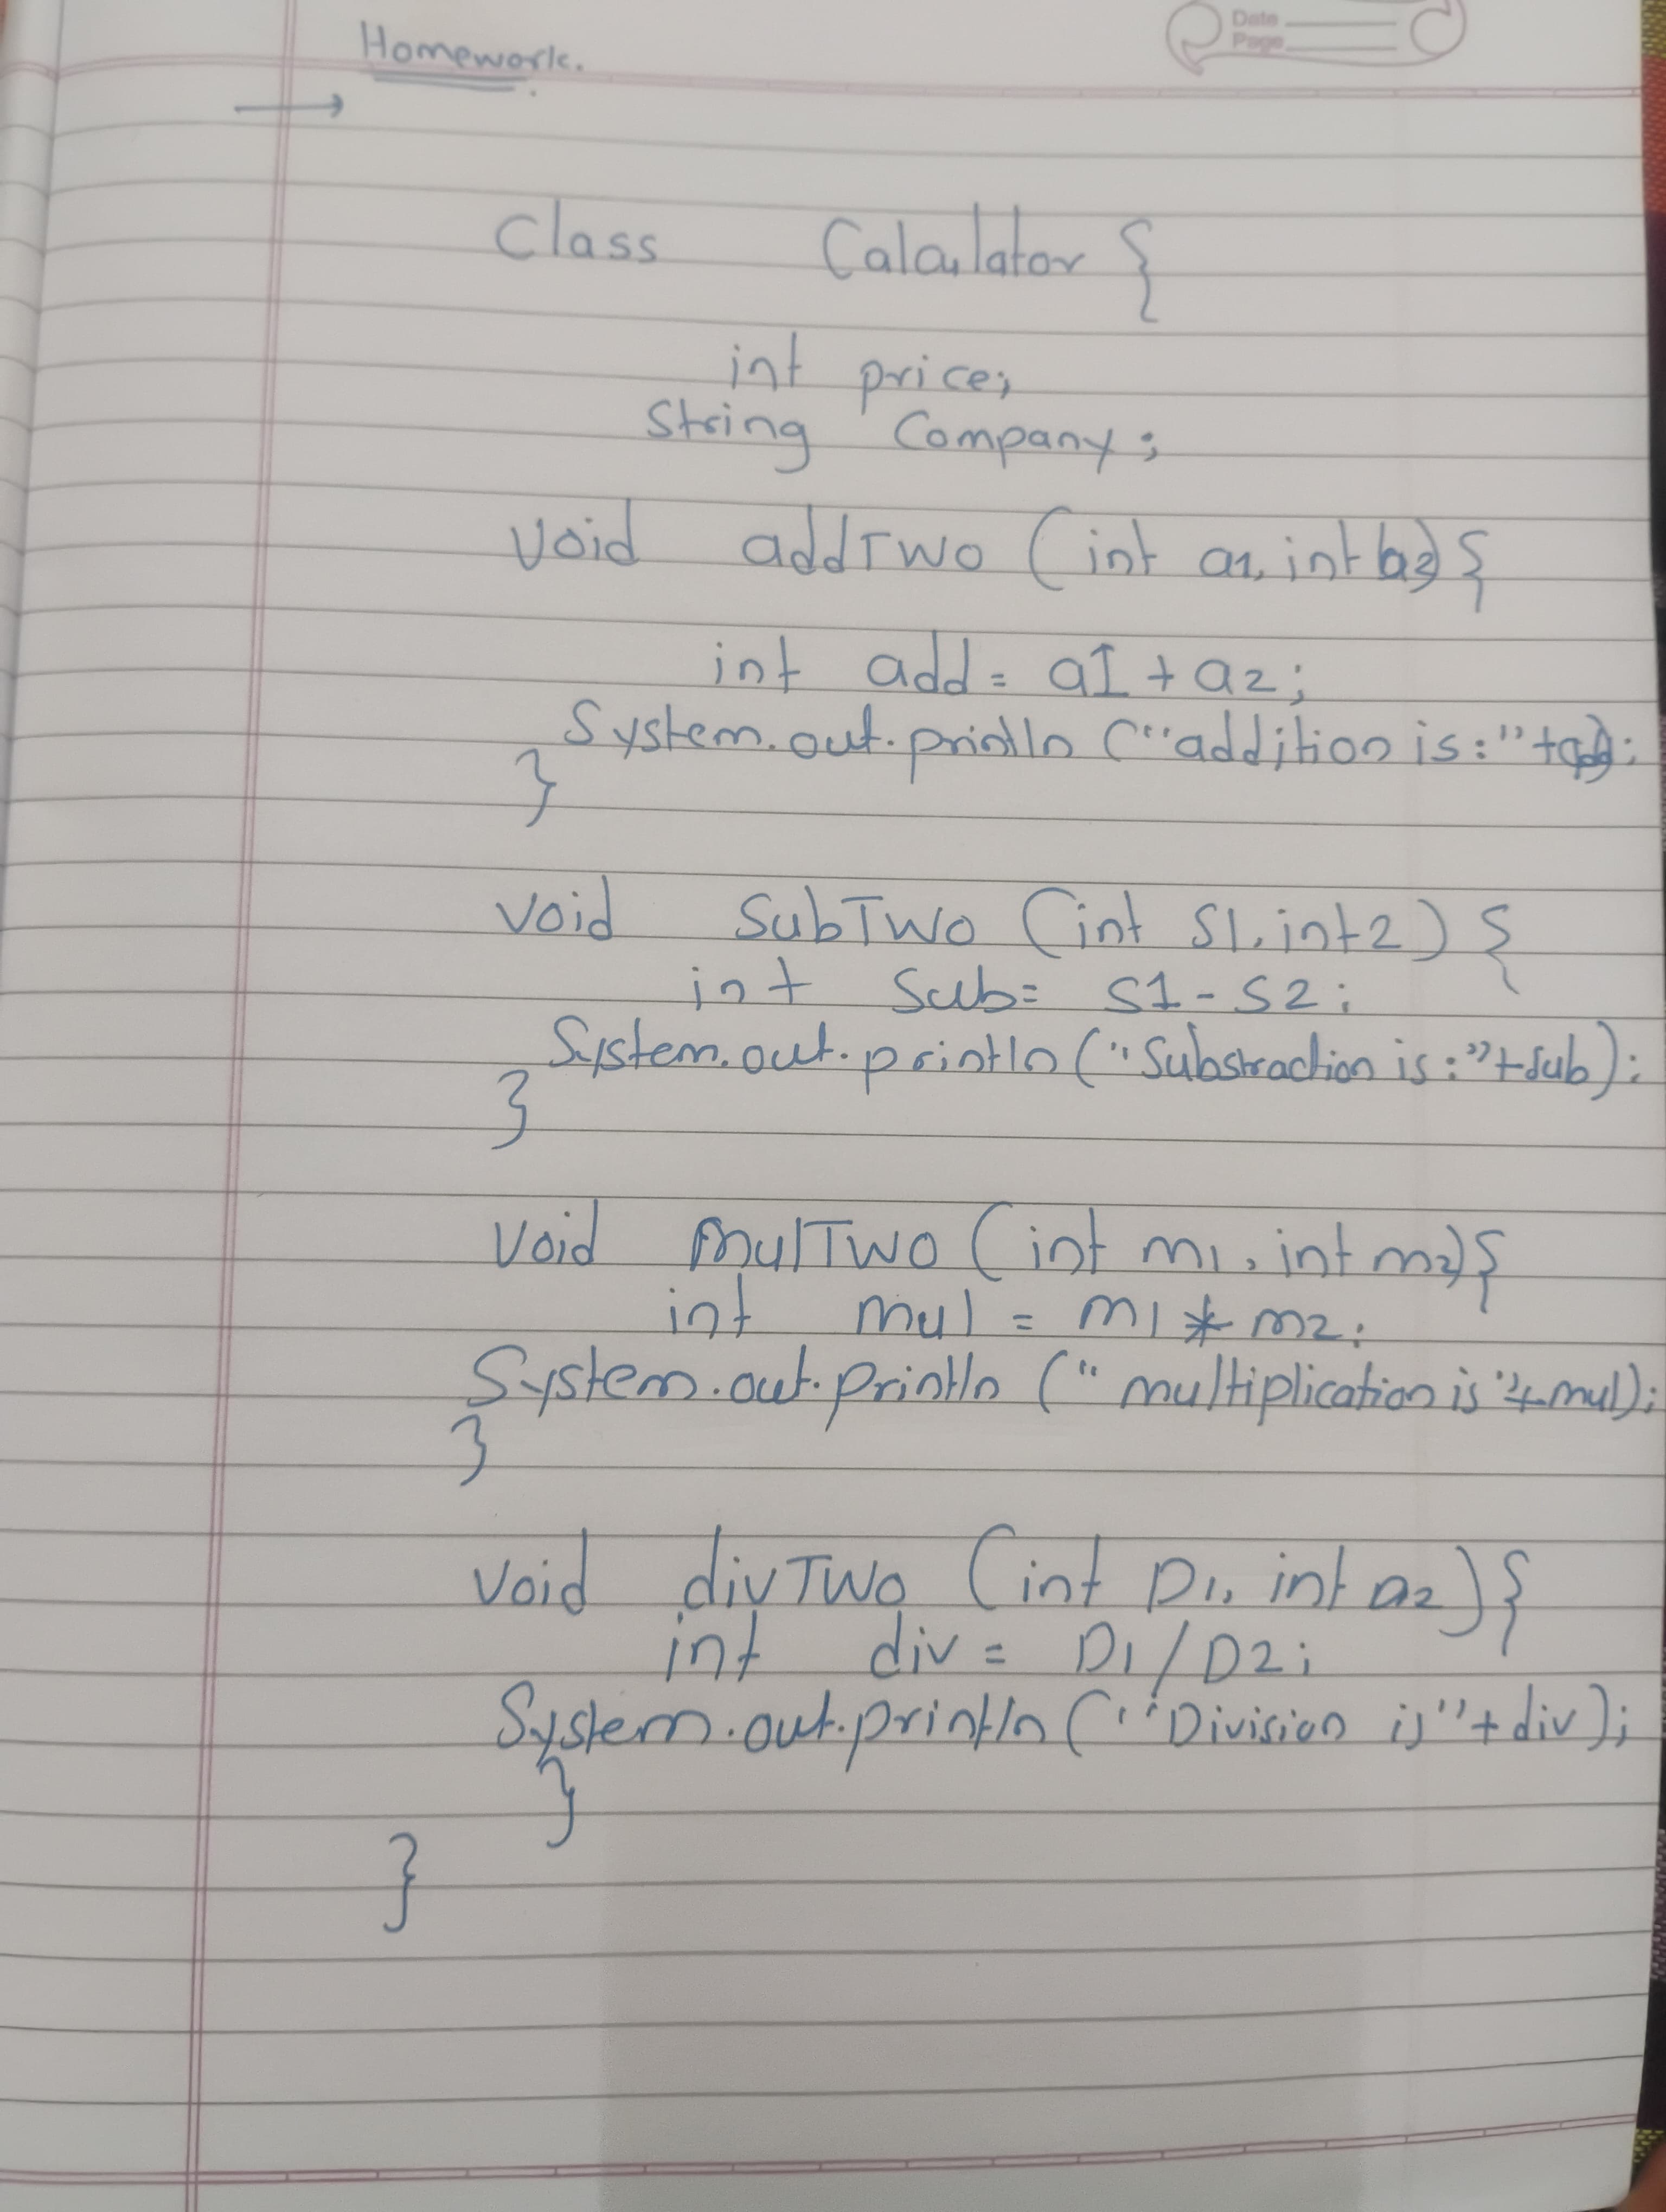 Date
Page
Homework.
Class Calculator {
int price;
String Company;
void addTwo (int a1, int b2) {
int add = aI + a2;
System.out.println ("addition is:"+add);
}
void SubTwo (int S1, int 2) {
int Sub = S1 - S2;
System.out.println ("Substraction is:"+sub);
}
void mulTwo (int m1, int m2) {
int mul = m1 * m2;
System.out.println ("multiplication is"+mul);
}
void divTwo (int D1, int D2) {
int div = D1/D2;
System.out.println ("Division is"+div);
}
}